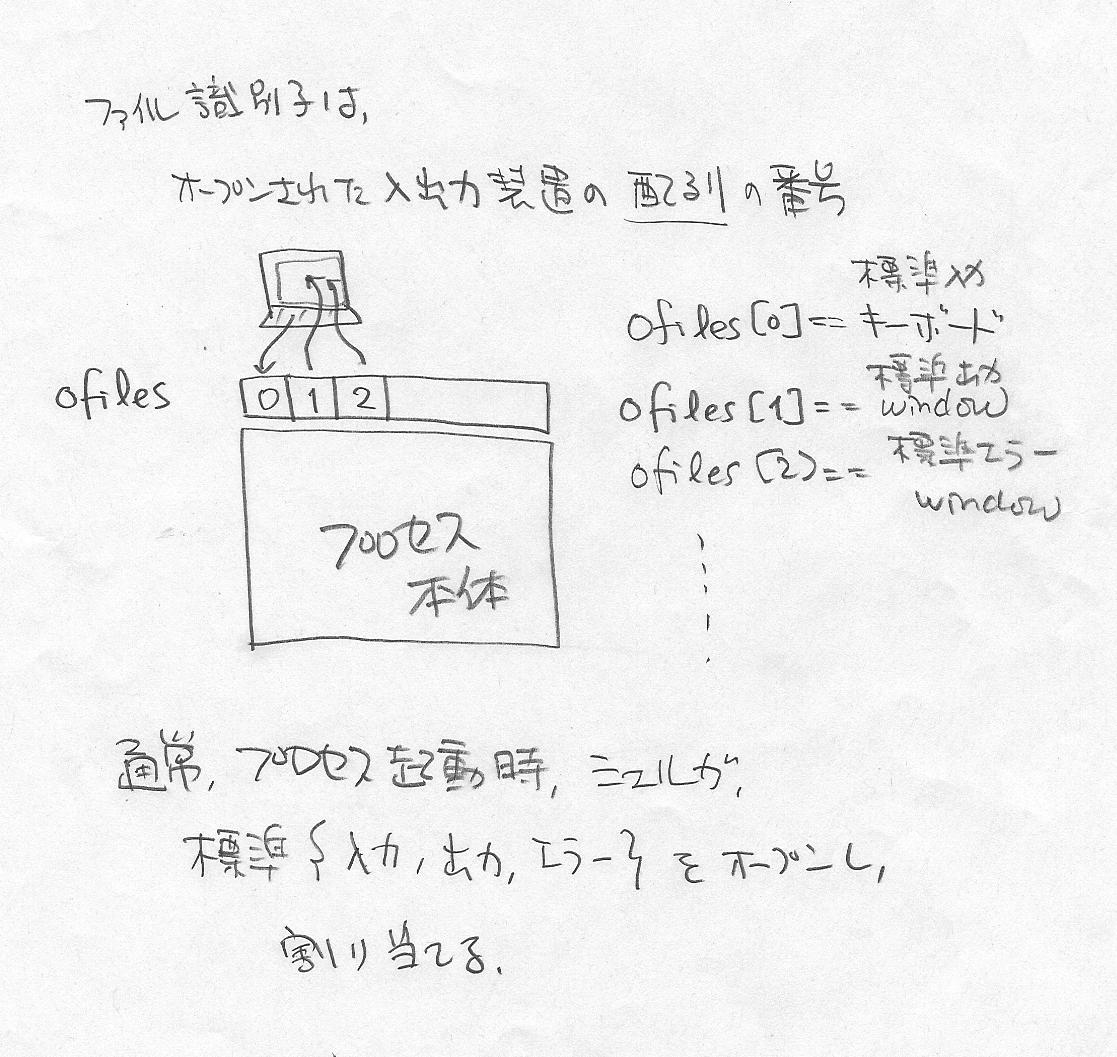 ファイル識別子は,
オープンされた入出力装置の配る川の番号
ofiles
0 1 2
プロセス
本体
標準入力
ofiles[0]== キーボード
標準出力
ofiles[1]== window
標準エラー
ofiles[2)==
window
通常,プロセス起動時,シェルが,
標準{入力,出力,エラー}をオープンし,
割り当てる.